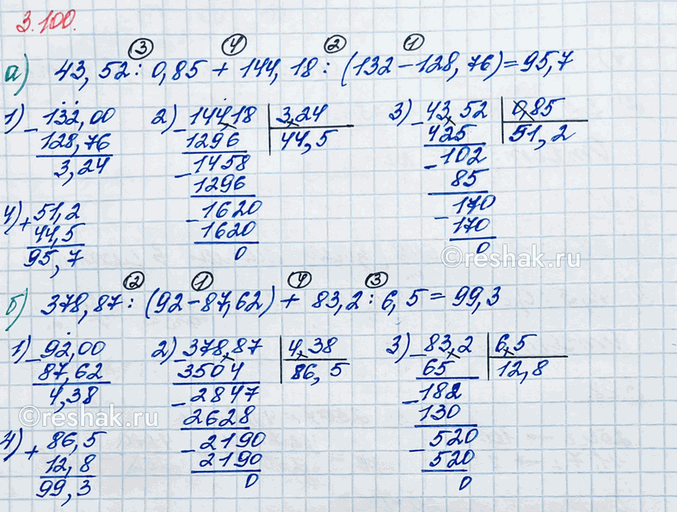 3.100.
③ ④ ② ①
а) 43,52 : 0,85 + 144,18 : (132 - 128,76) = 95,7
1) - 132,00
128,76
3,24
2) - 144,18 | 3,24
1296 | 44,5
- 1458
1296
- 1620
1620
0
3) - 43,52 | 0,85
425 | 51,2
- 102
85
- 170
170
0
4) + 51,2
44,5
95,7
© reshak.ru
② ① ④ ③
б) 378,87 : (92 - 87,62) + 83,2 : 6,5 = 99,3
1) - 92,00
87,62
4,38
2) - 378,87 | 4,38
3504 | 86,5
- 2847
2628
- 2190
2190
0
3) - 83,2 | 6,5
65 | 12,8
- 182
130
- 520
520
0
4) + 86,5
12,8
99,3
© reshak.ru